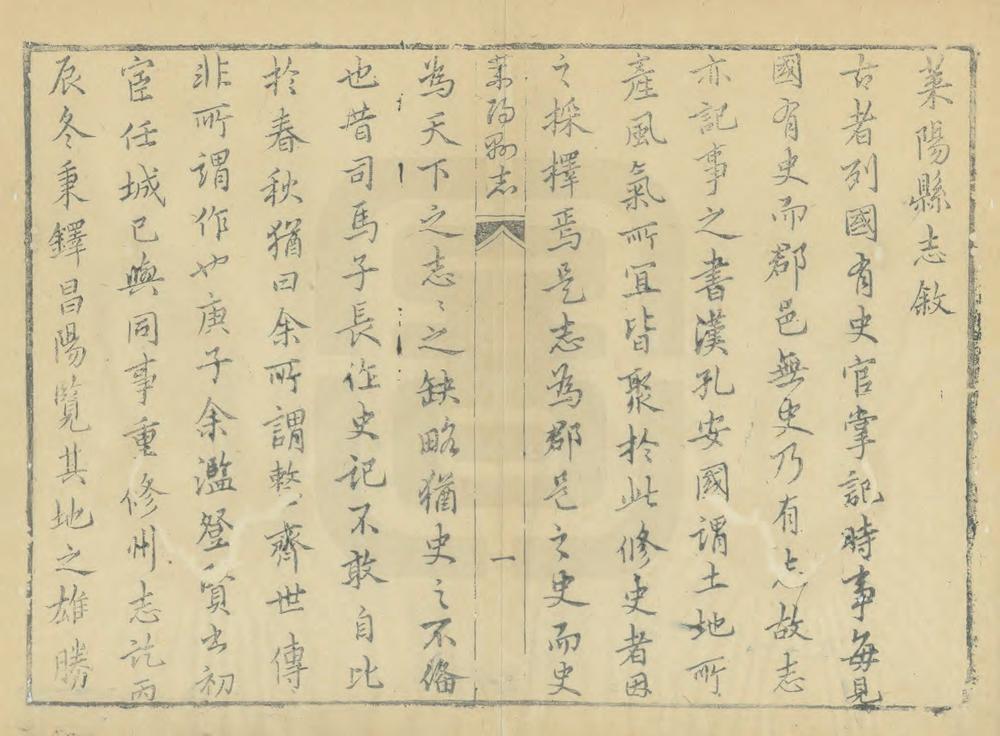 萊陽縣志敘
古者列國有史官掌記時事每見
國有史而郡邑無史乃有志故志
亦記事之書漢孔安國謂土地所
產風氣所宜皆聚於此修史者因
之採擇焉是志為郡邑之史而史
萊陽縣志
一
為天下之志〻之缺略猶史之不偹
也昔司馬子長作史記不敢自比
於春秋猶曰余所謂整齊世傳
非所謂作也庚子余濫登賢書初
宦任城已與同事重修州志訖丙
辰冬秉鐸昌陽覽其地之雄勝